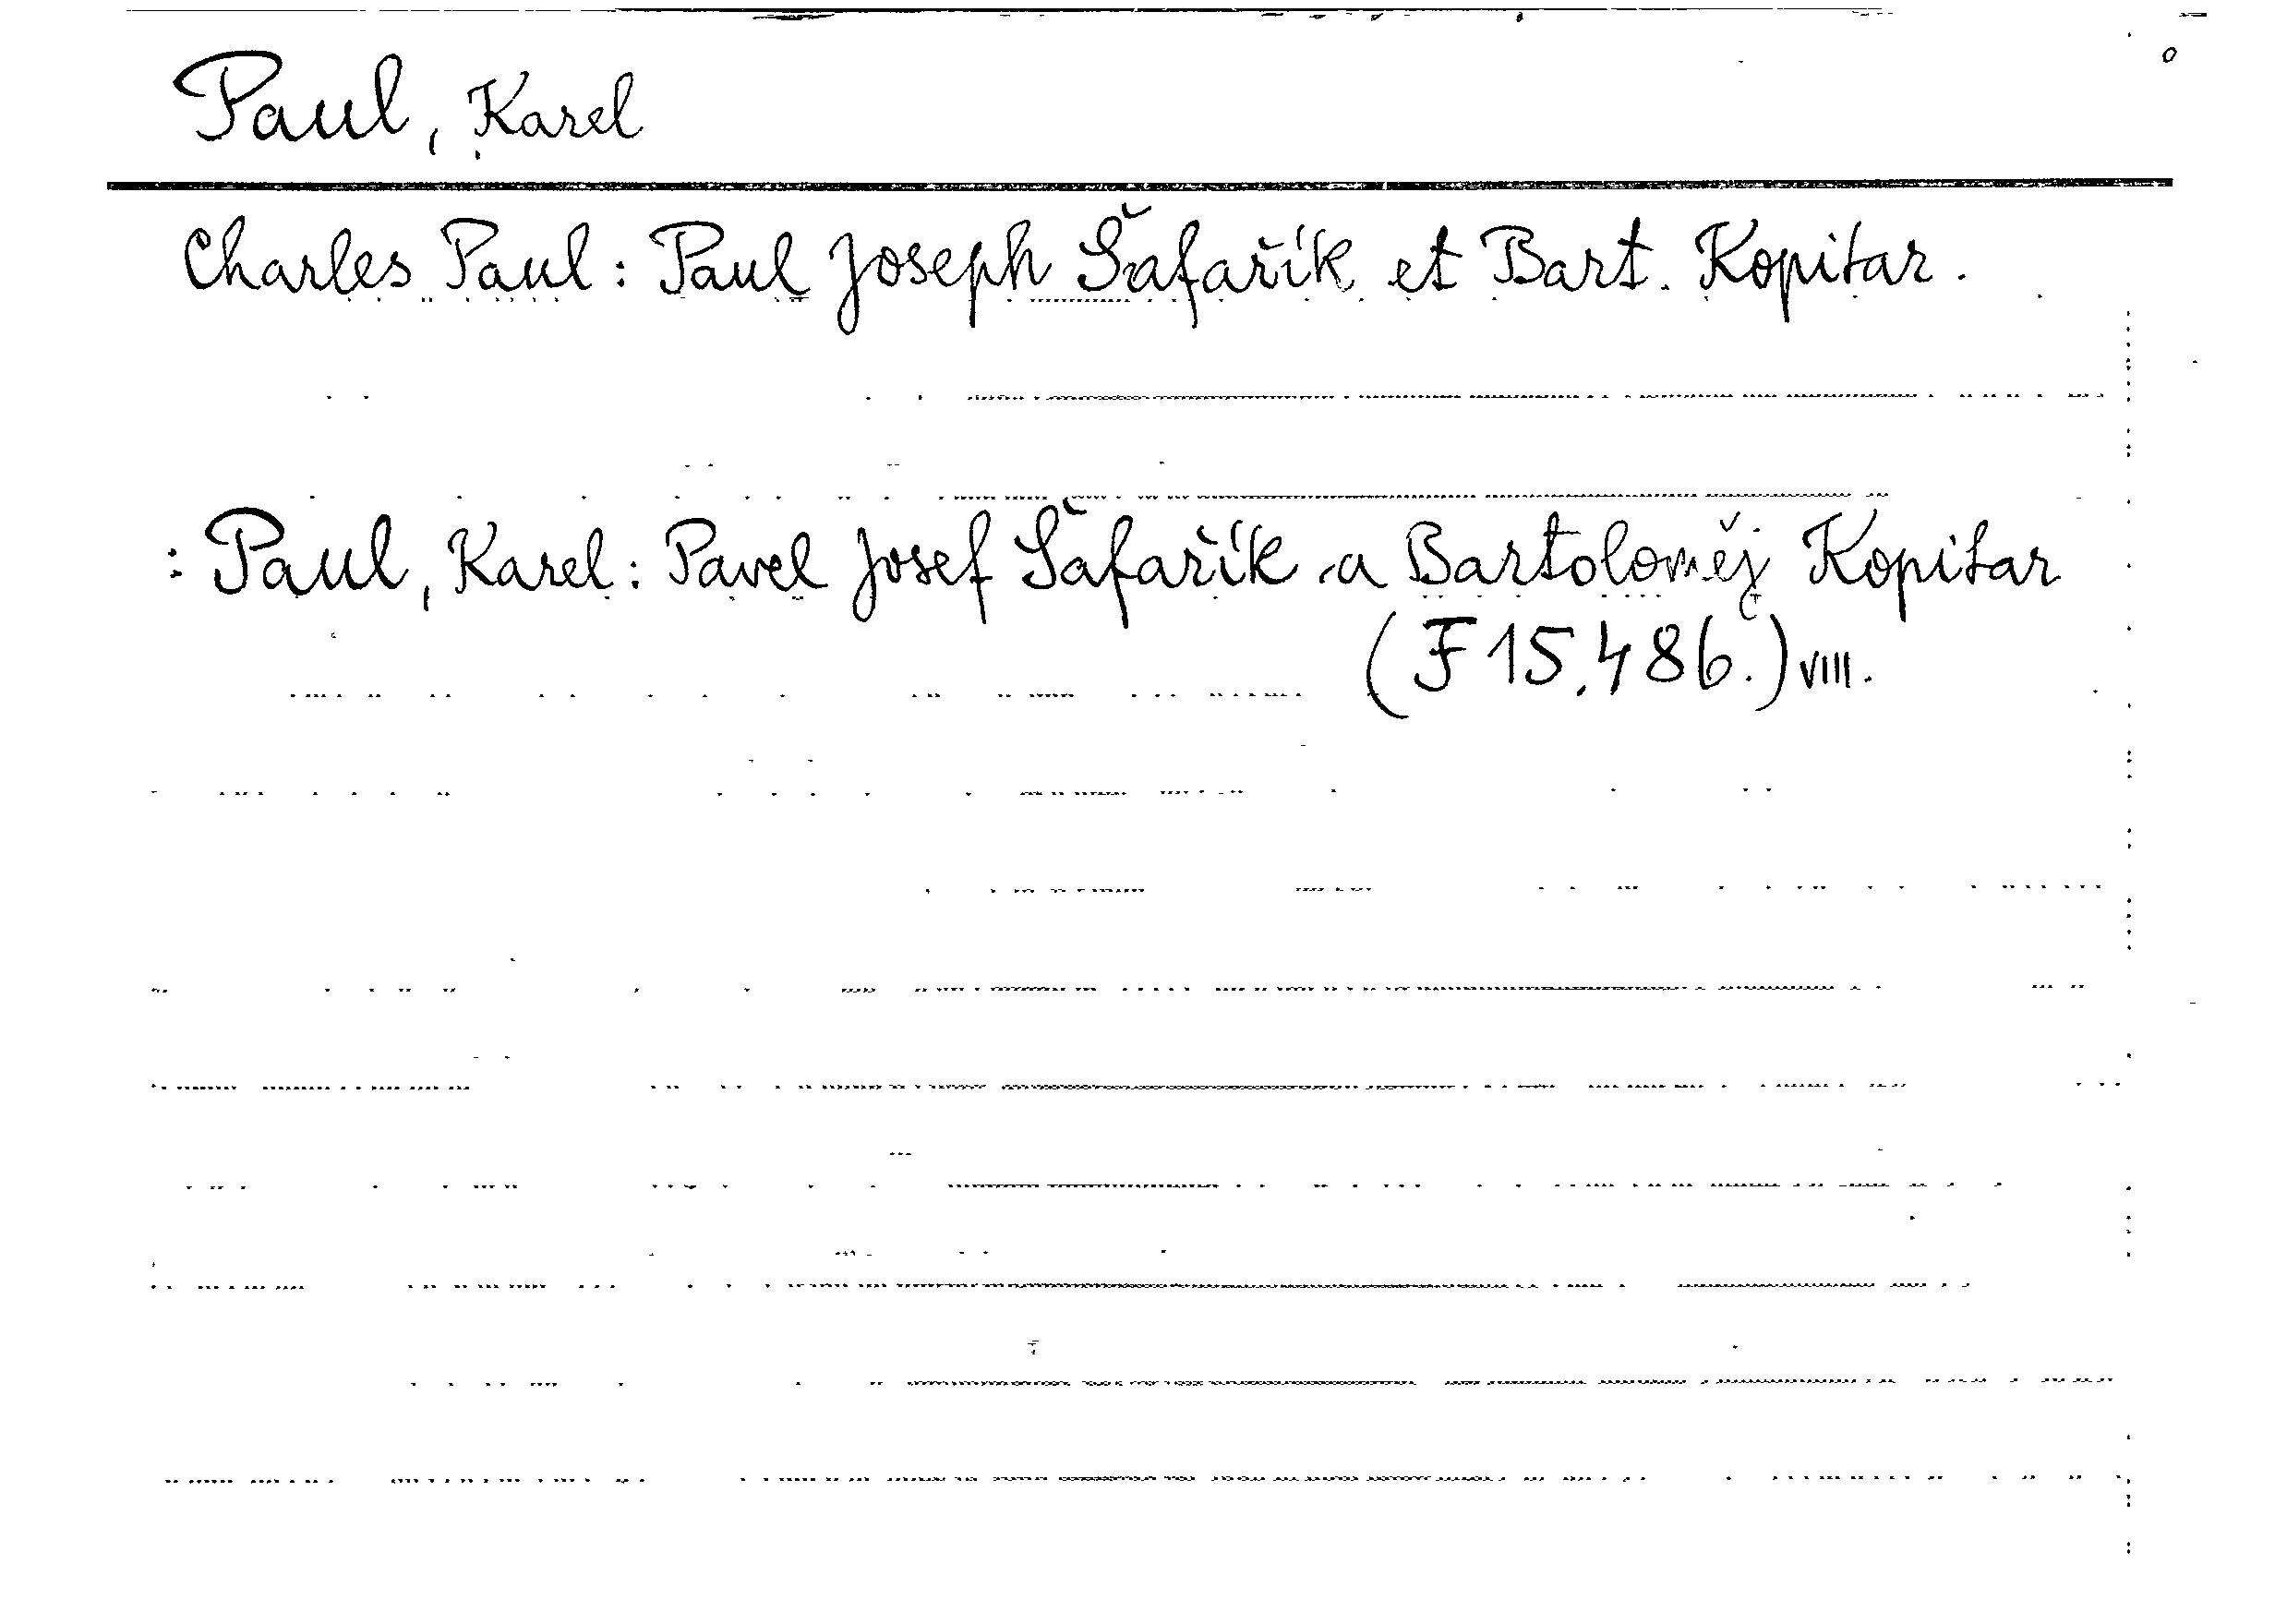 Paul, Karel
Charles Paul: Paul Joseph Šafařík et Bart. Kopitar.
: Paul, Karel: Pavel Josef Šafařík a Bartoloměj Kopitar
(F 15.486.) VIII.